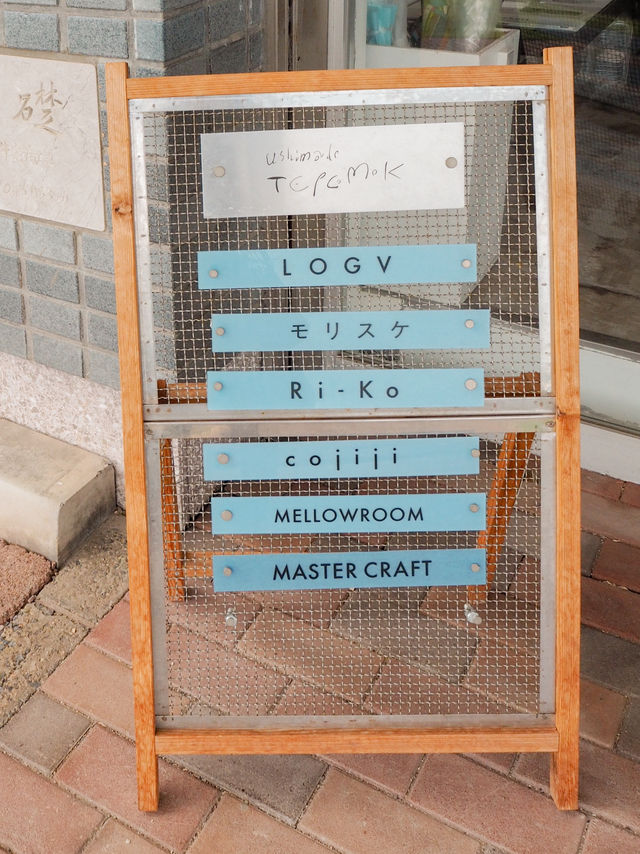 礎
ushimado
TEPEMOK
LOGV
モリスケ
Ri-Ko
cojiji
MELLOWROOM
MASTER CRAFT